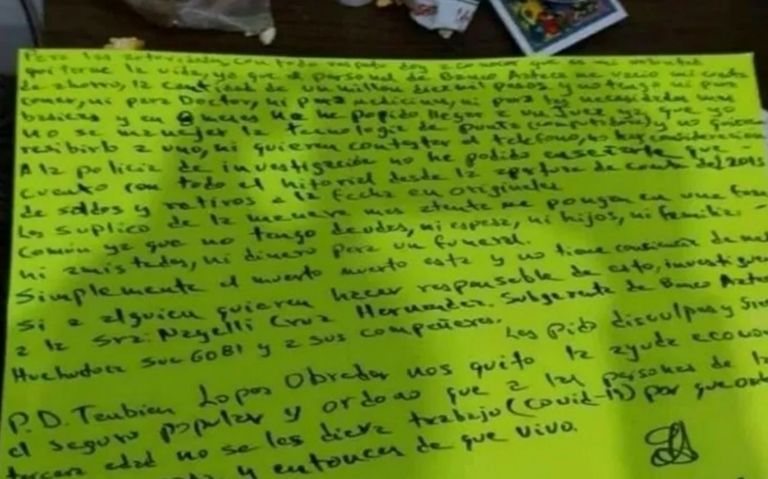 Para las autoridades, con todo respeto doy a conocer que en mi voluntad
quitarme la vida, ya que el personal de Banco Azteca me vacio mi cuenta
de ahorro, la cantidad de un millon diez mil pesos, y no tengo ni para
comer, ni para Doctor, ni para medicinas, ni para las necesidades mas
basicas y en 8 meses no he podido llegar a un Juez ya que yo
no se manejar la tecnologia de punta (computadora) y no quieren
resibirlo a uno, ni quieren contestar el telefono, no hay consideracion
A la policia de investigación no he podido enseñarle que -
cuento con todo el historial desde la apertura de cuenta del 2015
de saldos y retiros a la fecha en originales
Les suplico de la manera mas atenta me pongan en una fosa
comun ya que no tengo deudos, ni esposa, ni hijos, ni familia -
ni amistades, ni dinero para un funeral.
Simplemente el muerto muerto esta y no tiene conciencia de nada
Si a alguien quieren hacer responsable de esto, investiguen
a la Sra: Nayelli Cruz Hernandez. Subgerente de Banco Azteca
Huehuetoca Suc 6081 y a sus compañeros.
Les pido disculpas y
P.D. Tenbien Lopes Obrador nos quito la ayuda
el seguro popular y ordeno que a las personas de la
tercera edad no se les diera trabajo (covid-19) por que
y entonces de que vivo.